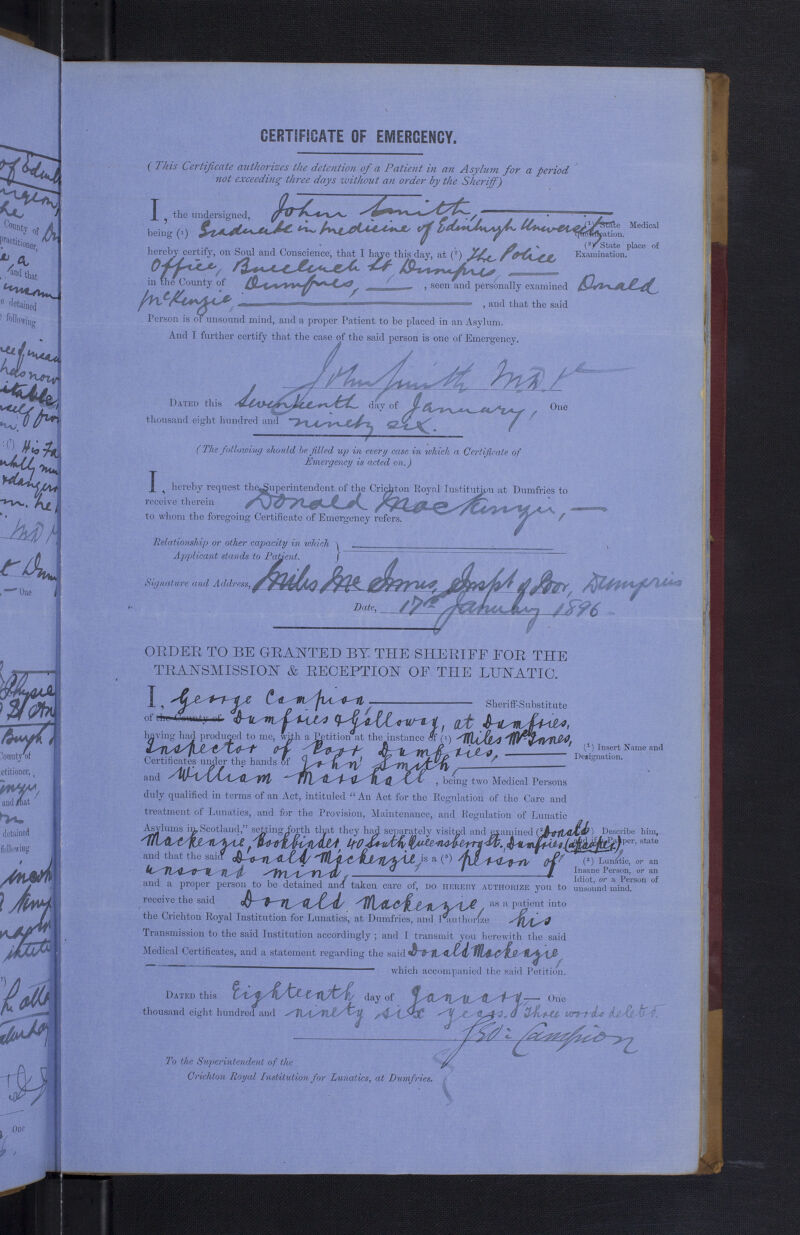 CERTIFICATE OF EMERGENCY.
(This Certificate authorizes the detention of a Patient in an Asylum for a period
not exceeding three days without an order by the Sheriff)
I, the undersigned, John Smith,
being (¹) Graduate in Medicine of Edinburgh University
(¹) State Medical
qualification.
hereby certify, on Soul and Conscience, that I have this day, at (²) The Police
(²) State place of
Examination.
Office, Buccleuch St, Dumfries,
in the County of Dumfries, , seen and personally examined Donald
McKenzie, , and that the said
Person is of unsound mind, and a proper Patient to be placed in an Asylum.
And I further certify that the case of the said person is one of Emergency.
John Smith M.D.
DATED this Seventeenth day of January, One
thousand eight hundred and ninety six.
(The following should be filled up in every case in which a Certificate of
Emergency is acted on.)
I, hereby request the Superintendent of the Crichton Royal Institution at Dumfries to
receive therein Donald MacKenzie,
to whom the foregoing Certificate of Emergency refers.
Relationship or other capacity in which
Applicant stands to Patient.
Signature and Address, Miles McInnes, Inspt of Poor, Dumfries
Date, 17th January 1896
ORDER TO BE GRANTED BY THE SHERIFF FOR THE
TRANSMISSION & RECEPTION OF THE LUNATIC.
I, George Campion Sheriff-Substitute
of the County of Dumfries & Galloway, at Dumfries,
having had produced to me, with a Petition at the instance of (¹) Miles McInnes,
Inspector of Poor, Dumfries,
(¹) Insert Name and
Designation.
Certificates under the hands of John Smith
and William Marshall , being two Medical Persons
duly qualified in terms of an Act, intituled "An Act for the Regulation of the Care and
treatment of Lunatics, and for the Provision, Maintenance, and Regulation of Lunatic
Asylums in Scotland," setting forth that they had separately visited and examined (²) Donald
Mackenzie, Bookbinder 40 South Queensberry St. Dumfries (a pauper),
(²) Describe him,
and if a Pauper, state
and that the said Donald Mackenzie, is a (³) person of
unsound mind,
(³) Lunatic, or an
Insane Person, or an
Idiot, or a Person of
unsound mind.
and a proper person to be detained and taken care of, DO HEREBY AUTHORIZE you to
receive the said Donald Mackenzie, as a patient into
the Crichton Royal Institution for Lunatics, at Dumfries, and I authorize his
Transmission to the said Institution accordingly; and I transmit you herewith the said
Medical Certificates, and a statement regarding the said Donald Mackenzie,
which accompanied the said Petition.
DATED this Eighteenth day of January One
thousand eight hundred and ninety six years. Three words deleted.
Geo: Campion
To the Superintendent of the
Crichton Royal Institution for Lunatics, at Dumfries.